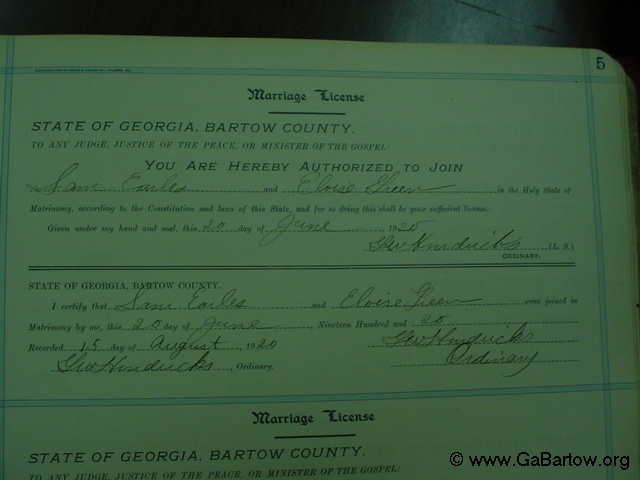 5
Marriage License
STATE OF GEORGIA, BARTOW COUNTY.
TO ANY JUDGE, JUSTICE OF THE PEACE, OR MINISTER OF THE GOSPEL:
YOU ARE HEREBY AUTHORIZED TO JOIN
Sam Earles and Eloise Green in the Holy State of
Matrimony, according to the Constitution and laws of this State, and for so doing this shall be your sufficient license.
Given under my hand and seal, this 20 day of June 1920
GW Hendricks (L. S.)
ORDINARY.
STATE OF GEORGIA, BARTOW COUNTY.
I certify that Sam Earles and Eloise Green were joined in
Matrimony by me, this 20 day of June Nineteen Hundred and 20
Recorded 15 day of August, 1920 GW Hendricks
GW Hendricks, Ordinary. Ordinary
Marriage License
STATE OF GEORGIA, BARTOW COUNTY.
TO ANY JUDGE, JUSTICE OF THE PEACE, OR MINISTER OF THE GOSPEL:
© www.GaBartow.org